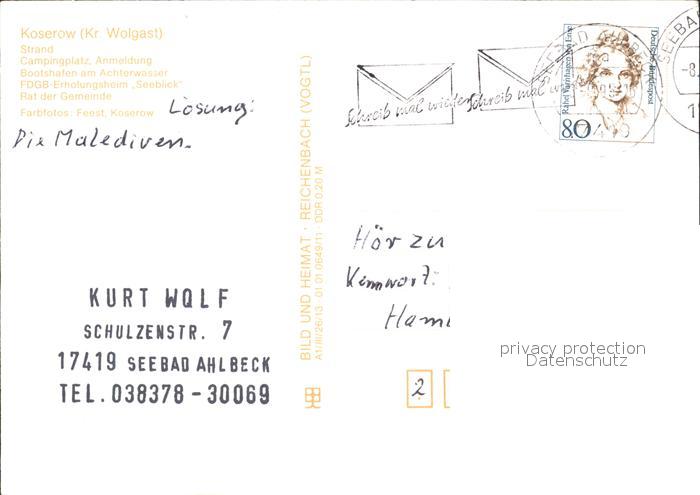 Koserow (Kr. Wolgast)
Strand
Campingplatz, Anmeldung
Bootshafen am Achterwasser
FDGB-Erholungsheim „Seeblick"
Rat der Gemeinde
Farbfotos: Feest, Koserow
Lösung:
Die Malediven.
BILD UND HEIMAT · REICHENBACH (VOGTL)
A1/III/26/13 · 01 01 0649/11 · DDR 0,20 M
Schreib mal wieder
Schreib mal
Rahel Varnhagen von Ense
Deutsche Bundespost
80
SEEBA
-8.
1
Hör zu
Kennwort:
Ham
KURT WOLF
SCHULZENSTR. 7
17419 SEEBAD AHLBECK
TEL. 038378 - 30069
2
privacy protection
Datenschutz